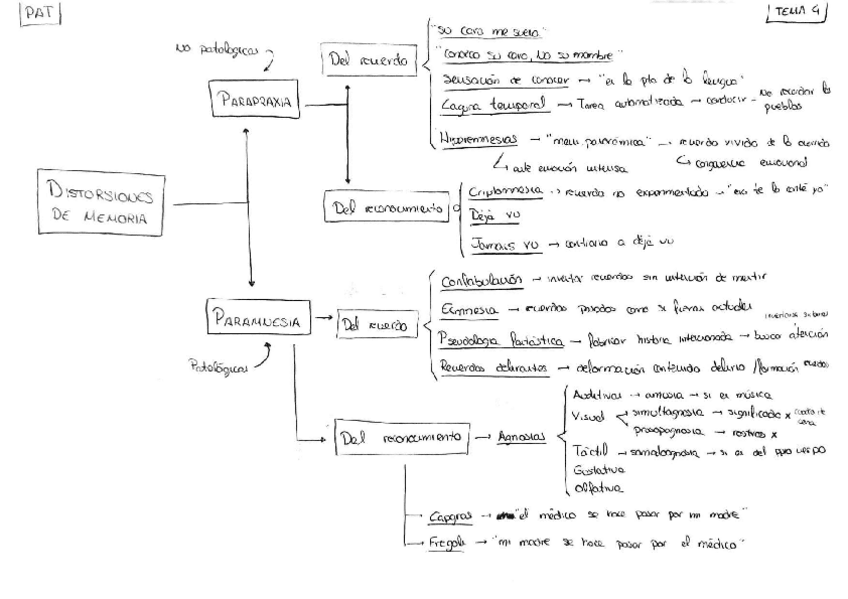 PAT
TEMA 4
No patológicas
Del recuerdo
"su cara me suena"
"conozco su cara, no su nombre"
Sensación de conocer → "en la pta de la lengua"
Laguna temporal → Tarea automatizada → conducir - No recordar los
pueblos
PARAPRAXIA
Hipermnesias → "mem. panorámica" → recuerdo vivido de lo ocurrido
↳ ante emoción intensa
↳ congruencia emocional
DISTORSIONES
DE MEMORIA
Del reconocimiento
Criptomnesia → recuerdo no experimentado → "eso te lo conté yo"
Dejá vu
Jamais vu → contrario a dejà vu
PARAMNESIA
Patológicas
Del recuerdo
Confabulación → inventar recuerdos sin intención de mentir
Ecmnesia → recuerdos pasados como si fueran actuales
Pseudología fantástica → fabricar historia intencionada → busca atención
Recuerdos delirantes → deformación contenido delirio /formación
Del reconocimiento → Agnosias
Auditivas → amusia → si es música
Visual
simultagnosia → significado x
prosopagnosia → rostros x
Táctil → somatoagnosia → si es del pro cuerpo
Gustativa
Olfativa
Capgras → "el médico se hace pasar por mi madre"
Fregoli → "mi madre se hace pasar por el médico"